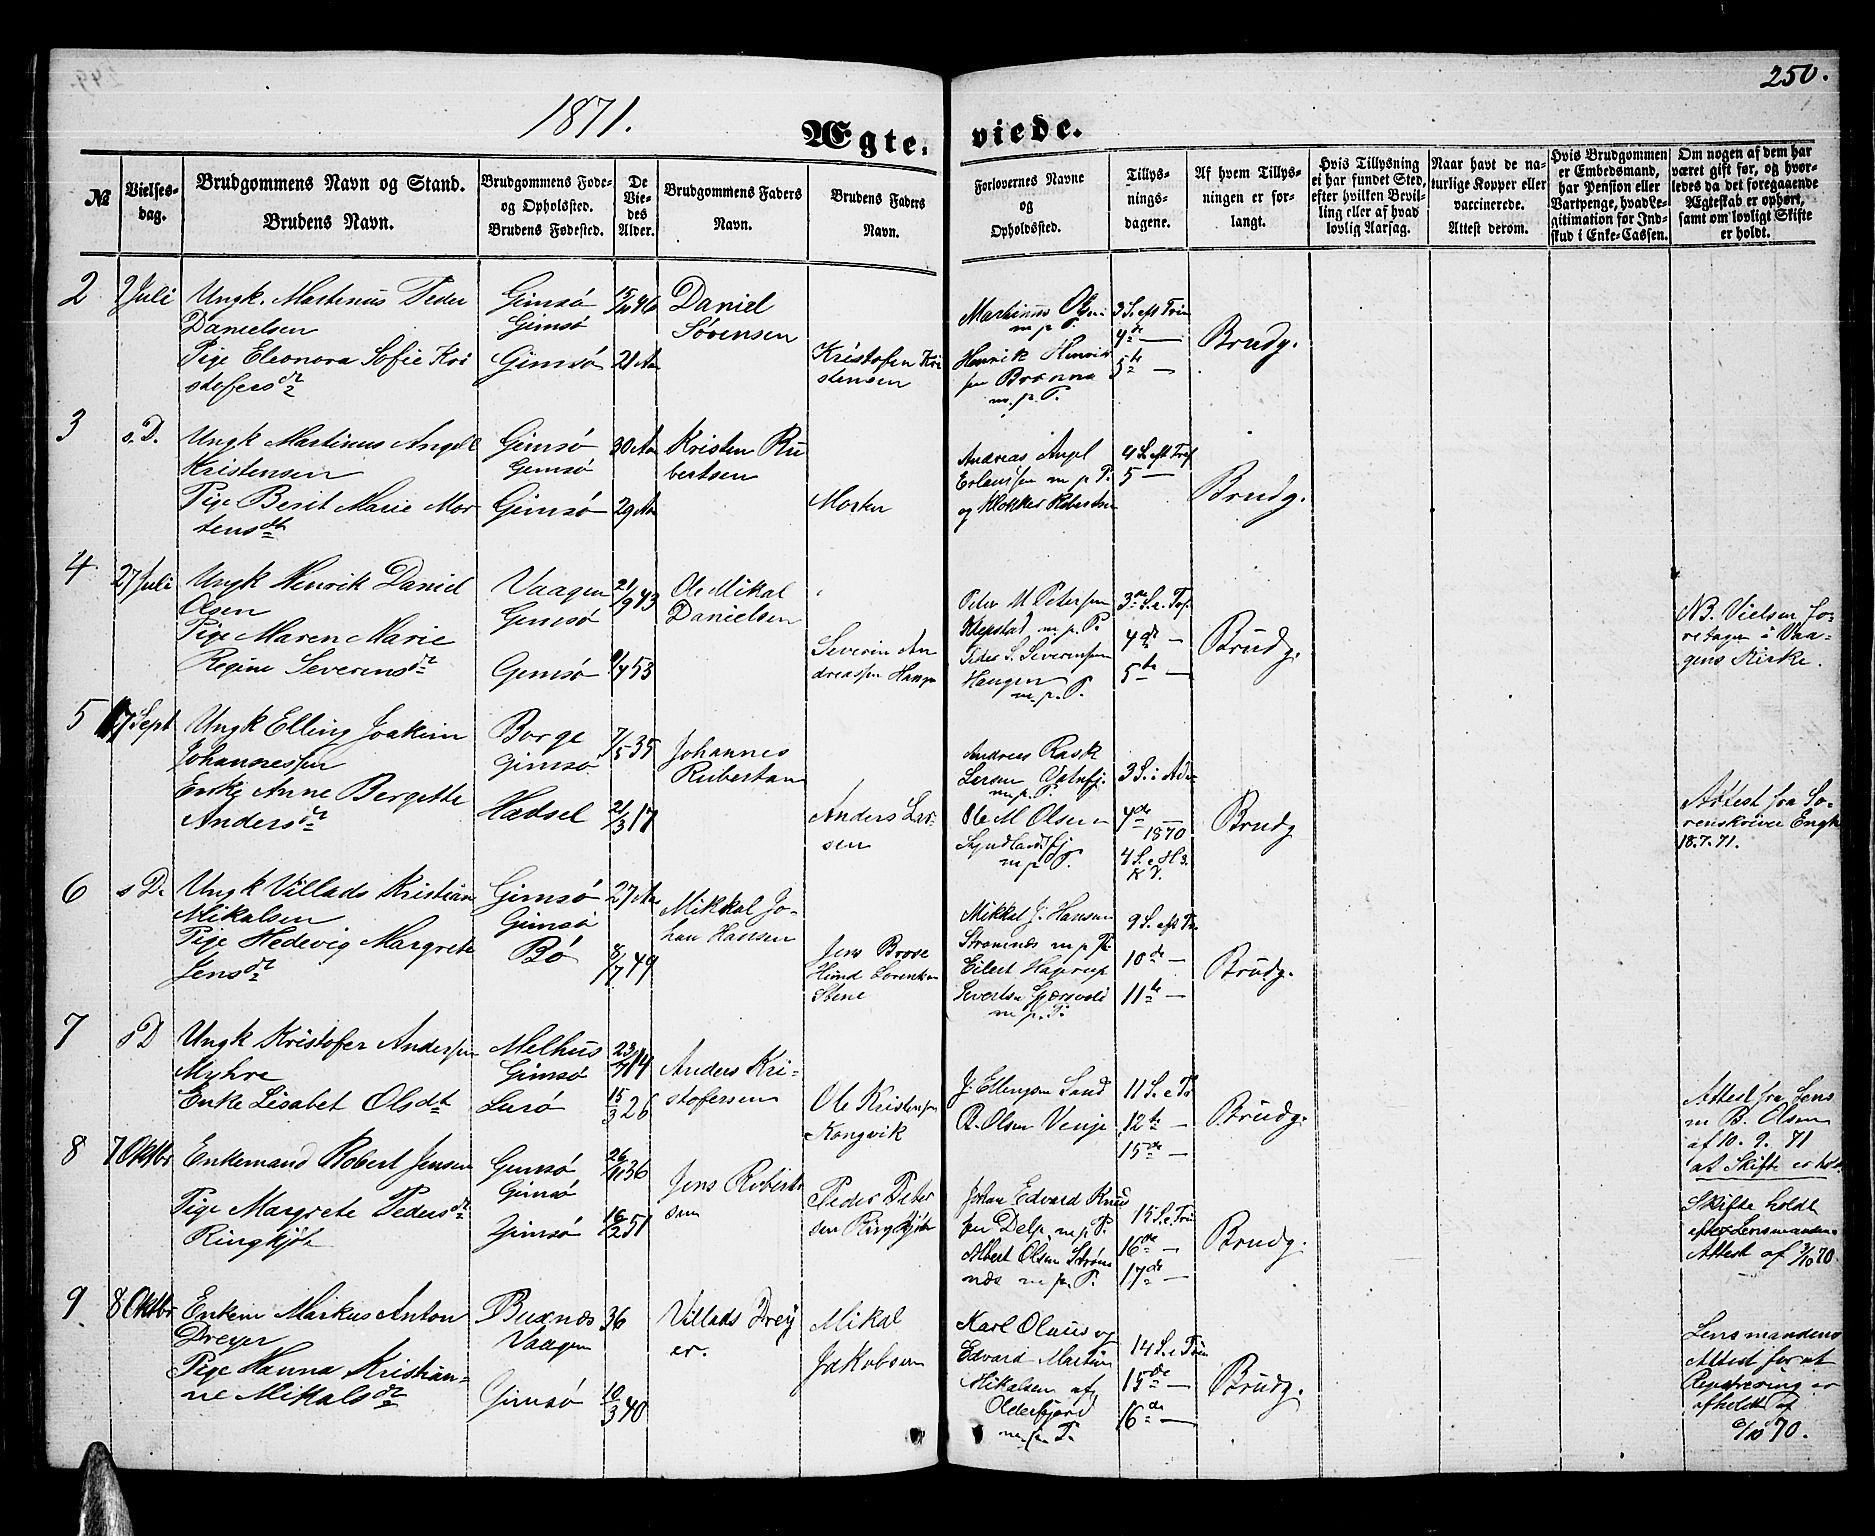 250.
1871.
Ægte- viede.
№
Vielses-
dag.
Brudgommens Navn og Stand.
Brudens Navn.
Brudgommens Føde-
og Opholdssted.
Brudens Fødested.
De
Vie-
des
Alder.
Brudgommens Faders
Navn.
Brudens Faders
Navn.
Forlovernes Navne
og
Opholdssted.
Tillys-
nings-
dagene.
Af hvem Tillys-
ningen er for-
langt.
Hvis Tillysning
ei har fundet Sted,
efter hvilken Bevil-
ling eller af hvad
lovlig Aarsag.
Naar havt de na-
turlige Kopper eller
vaccinerede.
Attest derom.
Hvis Brudgommen
er Embedsmand,
har Pension eller
Vartpenge, hvad Le-
gitimation for Ind-
skud i Enke-Cassen.
Om nogen af dem har
været gift før, og hvor-
ledes da det foregaaende
Ægteskab er ophørt,
samt om lovligt Skifte
er holdt.
2
2 Juli
Ungk. Martinus Peder
Danielsen
Pige Eleonora Sofie Kri
stofersdr
Gimsø
Gimsø
Gimsø
21 Aar
Daniel
Sørensen
Kristofer Kri
stensen
Martinus Olsen
m. p. P.
Henrik Henrik
sen
m. p. P.
3 S. eft Trin
4de —
5te —
Brudg.
3
s. D.
Ungk Martinus Angel
Kristensen
Pige Berit Marie Mor
tensdt
Gimsø
Gimsø
Gimsø
30 Aar
29 Aar
Kristen Ru
bertsen
Morten
Andreas Angel
Erlandsen m p P.
og Klokker Robertsen
4 S. eft Tref
5 —
Brudg.
4
27 Juli
Ungk Henrik Daniel
Olsen
Pige Maren Marie
Regine Severensdr
Vaagen
Gimsø
Gimsø
21/9 43
9/7 53
Ole Mikal
Danielsen
Severin An
dreassen Haugen
Peder M Petersen
Klepstad m. p. P.
Peder S. Severinsen
Haugen
m. p. P.
3de S. e. Tr.
4de —
5te —
Brudg.
NB. Vielsen fo-
retagen i Vaa-
gens Kirke.
5
17 Sept
Ungk Elling Joakim
Johannessen
Enke Anne Bergette
Andersdr
Borge
Gimsø
Hadsel
7/5 35
21/3 17
Johannes
Rubertsen
Anders Lar
sen
Andreas Rask
Larsen Vatnfj.
m. p. P.
Ole M Olsen
Syndlandsfj
m p P.
3 S. i Adv
4de —
1870
4 S. e H 3.
K.
Brudg
Attest fra So-
renskriver Engh
18. 7. 71.
6
s D.
Ungk Villads Kristian
Mikalsen
Pige Hedevig Margrete
Jensdr
Gimsø
Gimsø
Bø
27 Aar
8/7 49
Mikkal Jo-
han Hansen
Jens Brose
Hind Lorentsen
Stene
Mikkel J. Hansen
Strømnes m p P.
Eilert Hagerup
Severtsen
m. p. P.
9 S. eft Tr.
10de —
11te —
Brudg.
7
s D
Ungk Kristofer Andersen
Myhre
Enke Lisabet Olsdt
Melhus
Gimsø
Lurø
15/3 26
Anders Kri-
stofersen
Ole Kristensen
Kongsvik
J. Ellingsen Sand
R. Olsen Venje
11 S. e Tr
12te —
15de —
Brudg.
Attest fra Lens
m B. Olsen
af 10. 9. 71
at Skifte er holdt
8
7 Oktbr
Enkemand Robert Jensen
Pige Margrete Pedersdr
Ringkjøb
Gimsø
Gimsø
Gimsø
26/11 36
16/2 51
Jens Roberts
sen
Peder Peter
sen Ringkjøb
Johan Edvard Knud
sen Delp m. p. P.
Albert Olsen Strøm
næs m p. P.
15 S. e Trin
16de —
17de —
Brudg.
Skifte holdt
efter Lensmandens
Attest af 3/10 70.
9
8 Oktbr
Enkem Markus Anton
Dreyer
Pige Hanna Kristian-
ne Mikalsdr
Buxnæs
Vaagen
Gimsø
36
10/3 40
Villads Drey
er.
Mikal
Jakobsen
Karl Olaus og
Edvard Martin
Mikalsen af
Olderfjord
m. p. P.
14 S. e Trin
15de —
16de —
Brudg.
Lensmandens
Attest for at
Registrering er
afholdt af
6/10 70.